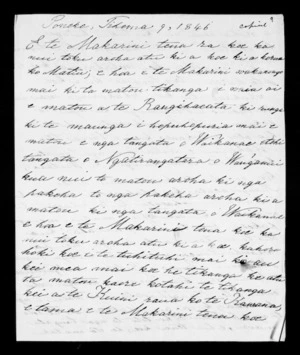 Poneke, Tihema 9, 1846 copied
E te Makarini tena ra koe ka
nui toku aroha atu ki a koe ki a korua
ko Matiu, e hoa e te Makarini
mai ki ta matou tikanga i
e matou a te Rangihaeata ki runga
ki te maunga i mai e
matou e nga tangata o Waikanae etehi
tangata o Ngatirangatera o Wanganui
kua nui to matou aroha ki nga
pakeha to nga pakeha aroha ki a
matou ki nga tangata o Waikanae
e hoa e te Makarini tena koe ka
nui toku aroha atu ki a koe, kahore
hoki koe e te tuhituhi mai ki au
kei mea mai koe he tikanga ke ata
ta matou kaore kotahi te tikanga
kei a te Kuini rana ko te Kawana,
e tama, e te Makarini tena koe